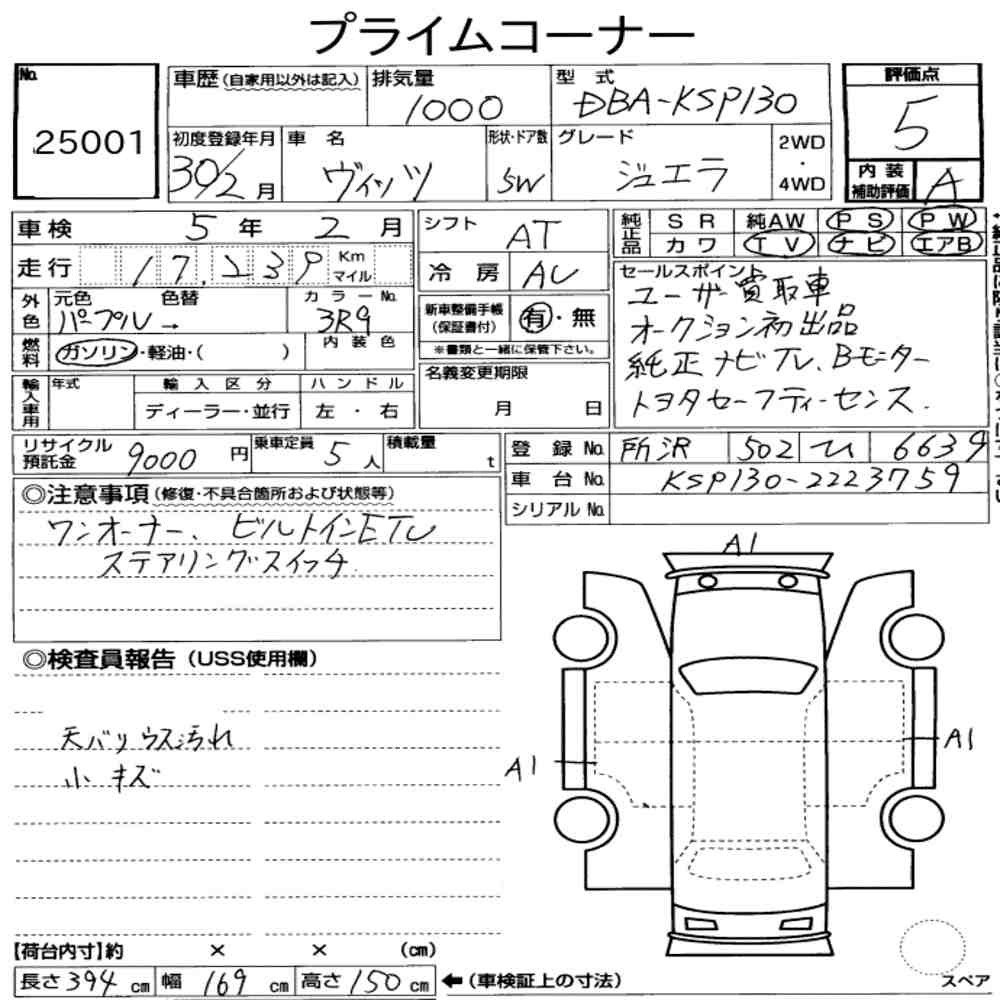 プライムコーナー
No. 25001
車歴 (自家用以外は記入)
排気量 1000
型 式 DBA-KSP130
評価点 5
初度登録年月 30/2 月
車 名 ヴィッツ
形状・ドア数 5W
グレード ジュエラ
2WD ・ 4WD
内 装 補助評価 A
車検 5 年 2 月
シフト AT
純正品 S R 純AW P S P W
カ ワ T V ナ ビ エアB
走行 17,239 Km マイル
冷 房 AC
セールスポイント
ユーザー買取車
オークション初出品
純正ナビTV、Bモニター
トヨタセーフティーセンス.
外色 元色 パープル → 色替 カラーNo. 3R9
新車整備手帳 (保証書付) 有・無
※書類と一緒に保管下さい。
燃料 ガソリン・軽油・( ) 内 装 色
名義変更期限 月 日
輸入車用 年式 輸 入 区 分 ハ ン ド ル
ディーラー・並行 左 ・ 右
リサイクル預託金 9000 円 乗車定員 5 人 積載量 t
登 録 No. 所沢 502 ひ 6639
車 台 No. KSP130-2223759
シリアル No.
◎注意事項 (修復・不具合箇所および状態等)
ワンオーナー、ビルトインETC
ステアリングスイッチ.
◎検査員報告 (USS使用欄)
天バリ ウス汚れ
小 キズ
A1
A1
A1
【荷台内寸】約 × × (cm)
長さ 394 cm 幅 169 cm 高さ 150 cm ←(車検証上の寸法)
スペア